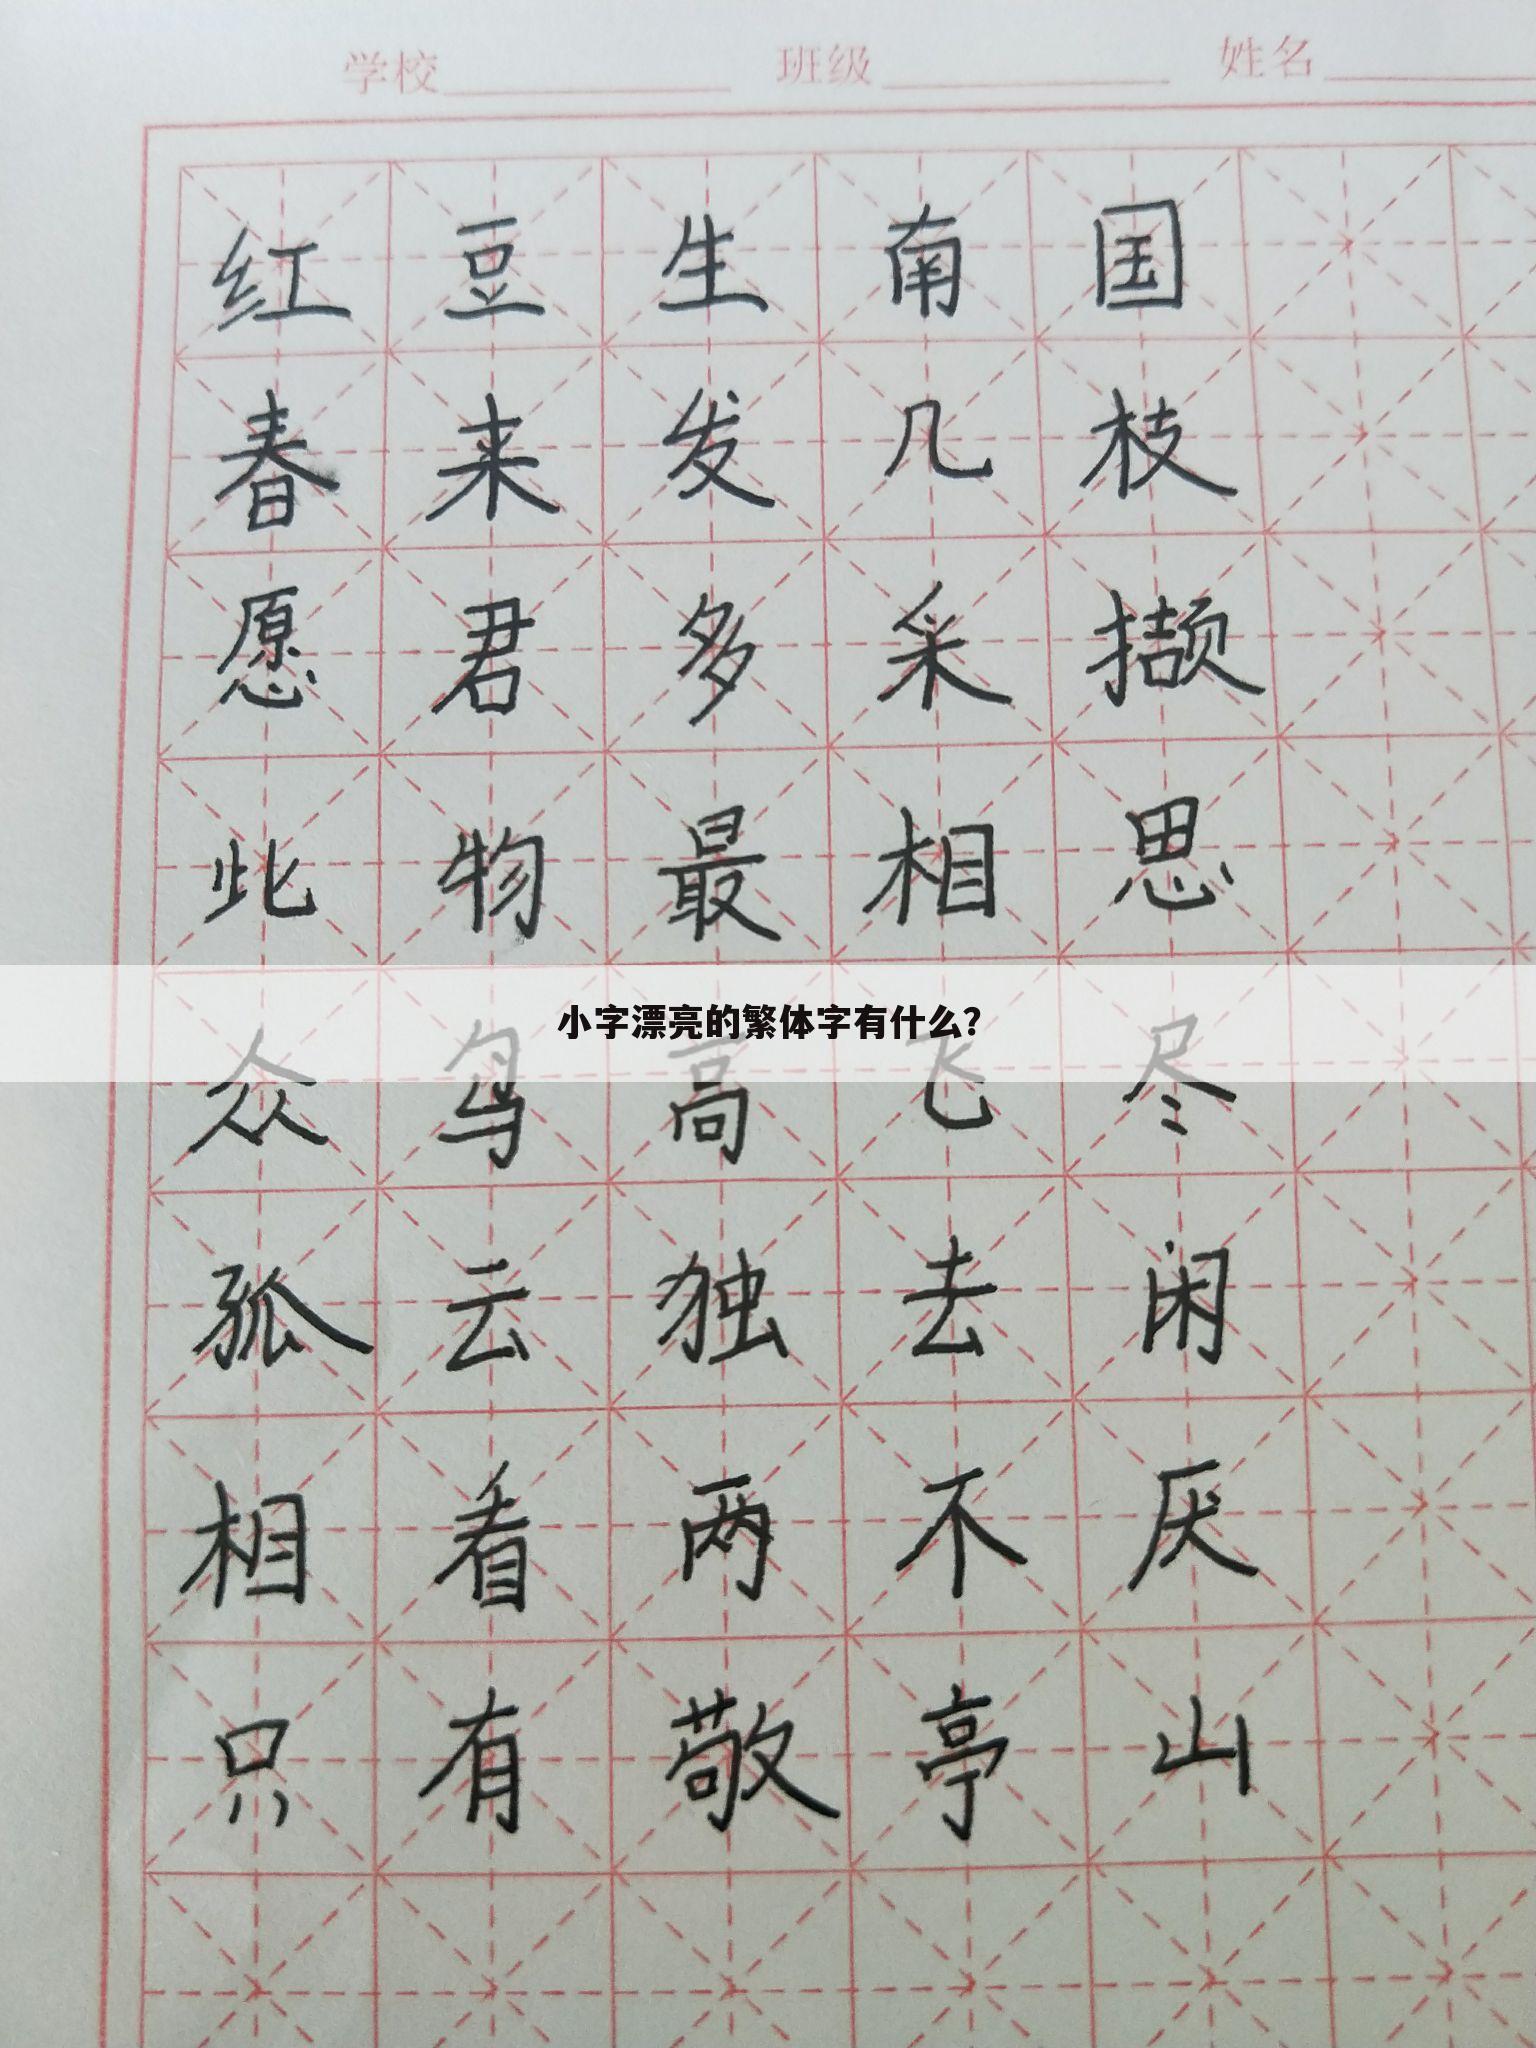 学校 班级 姓名
红豆生南国
春来发几枝
愿君多采撷
此物最相思
小字漂亮的繁体字有什么?
众鸟高飞尽
孤云独去闲
相看两不厌
只有敬亭山